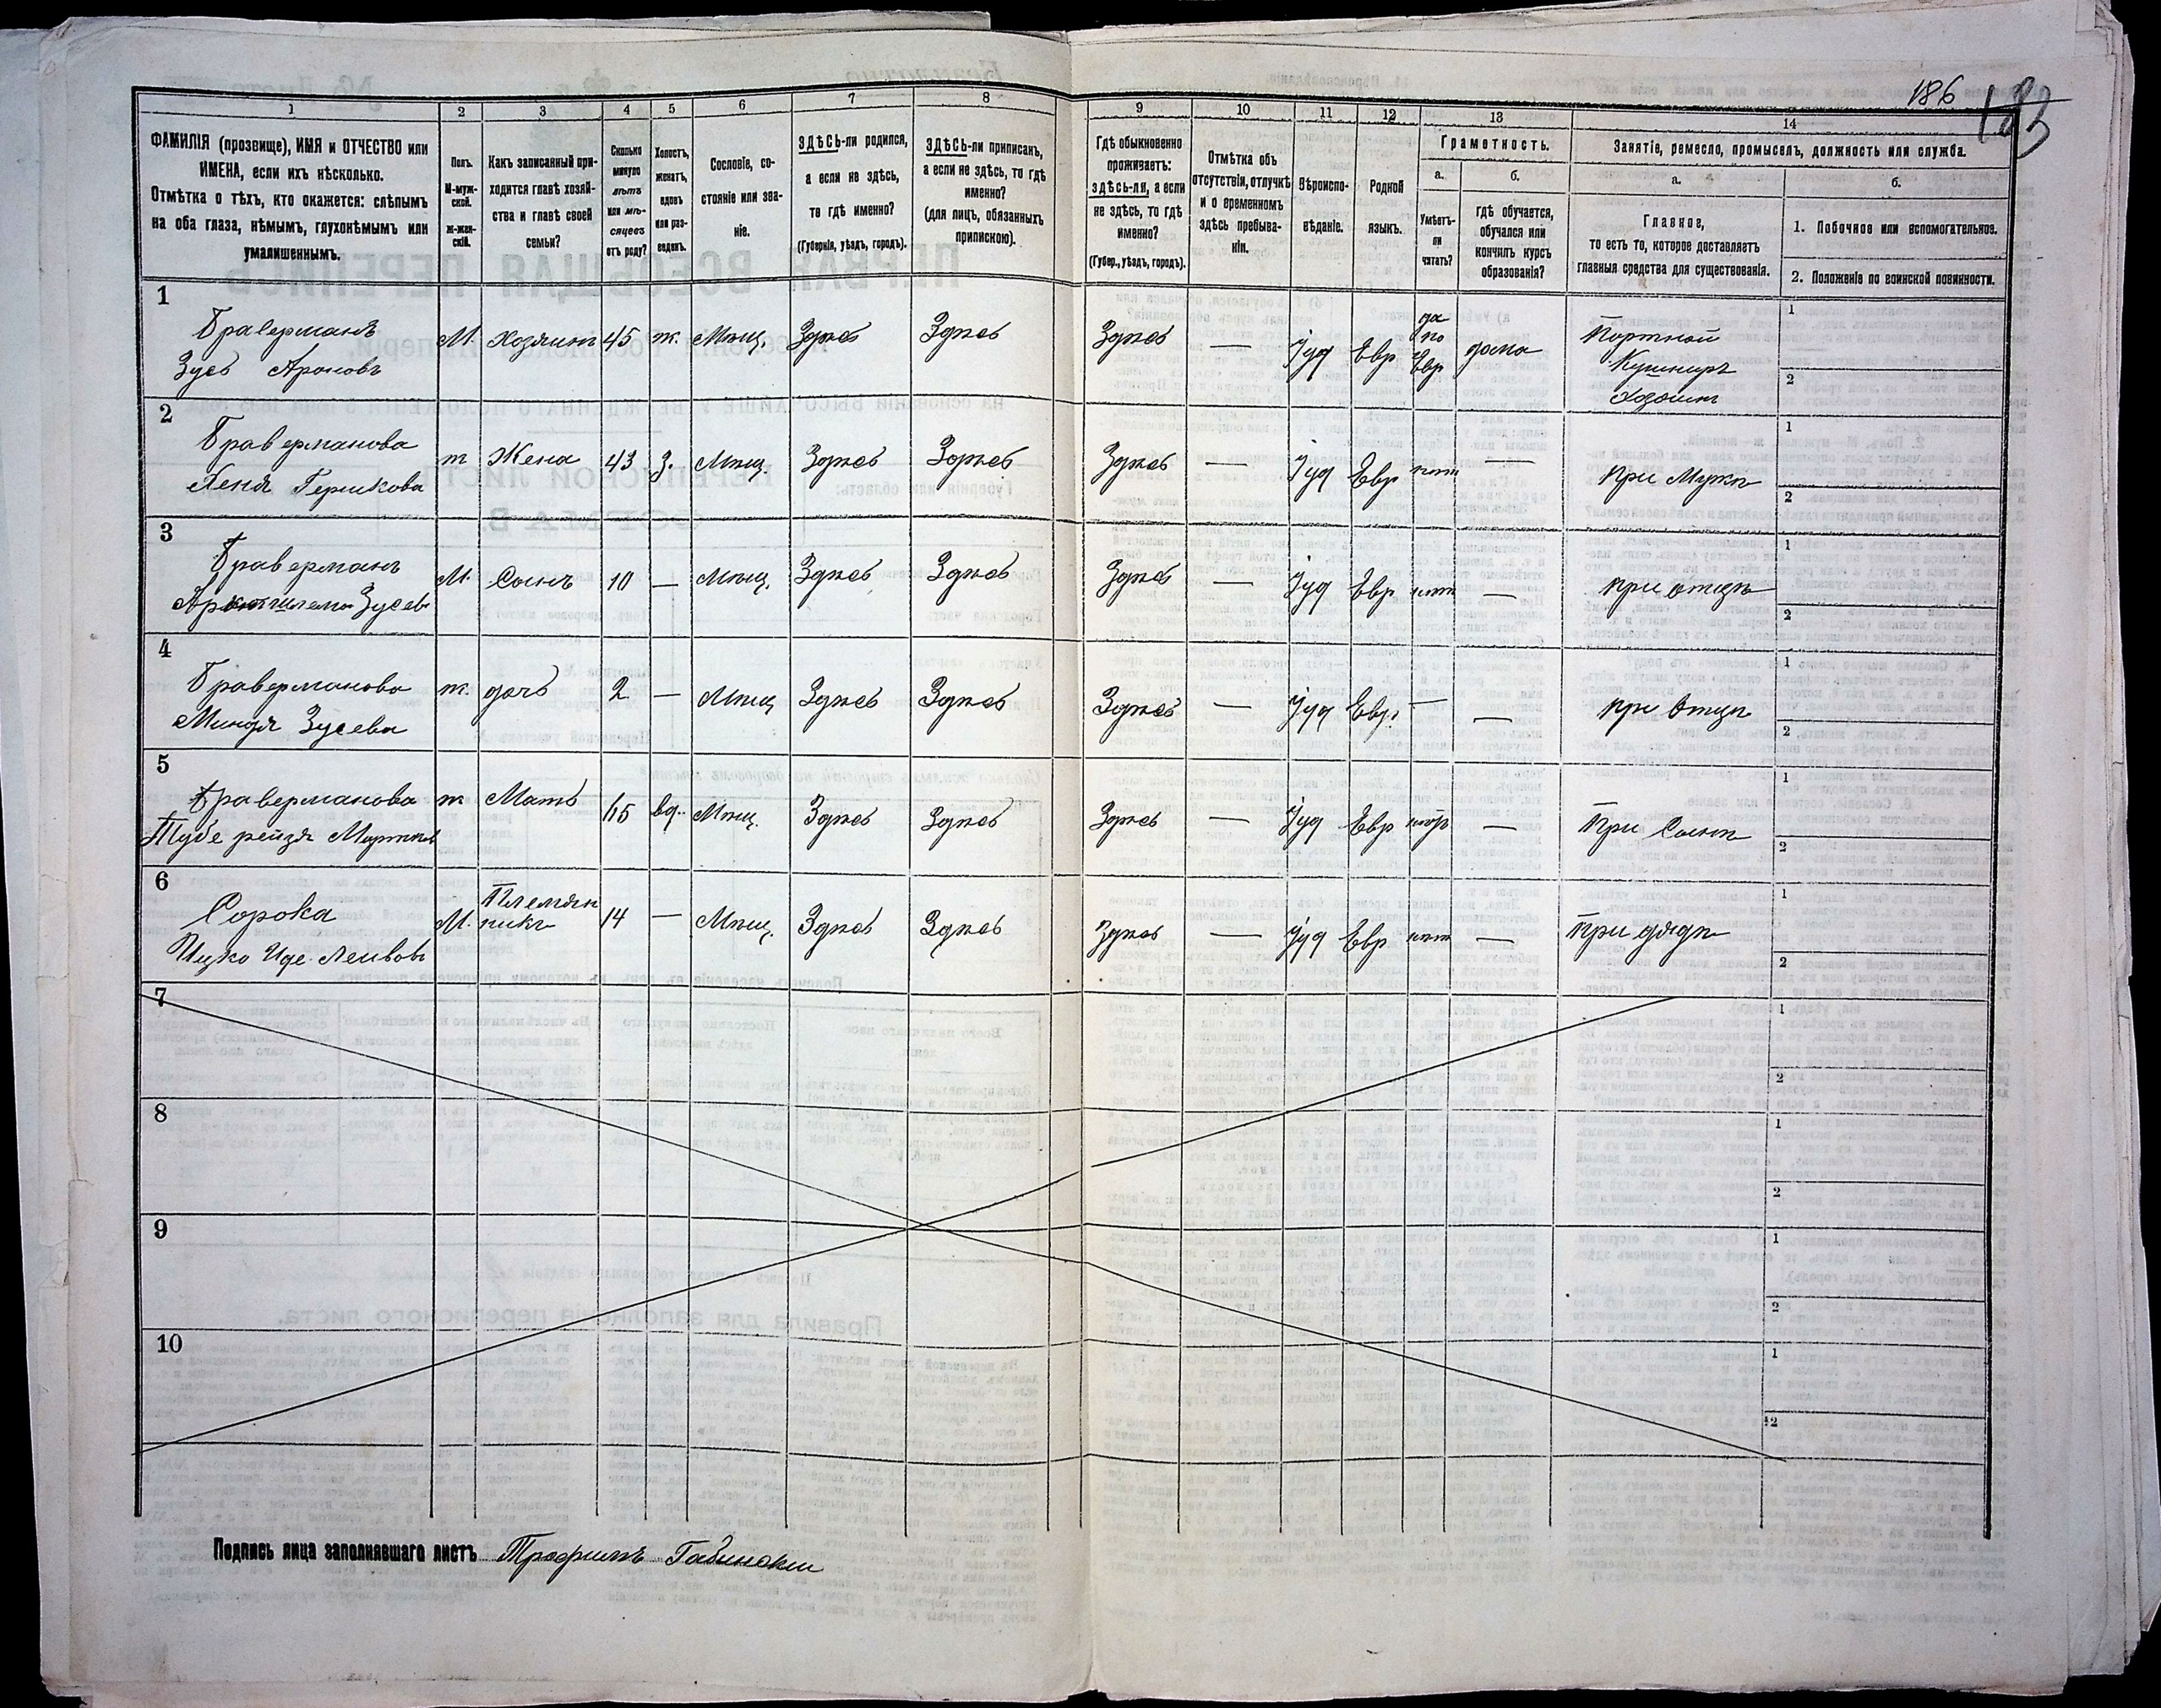 186
183
1
2
3
4
5
6
7
8
9
10
11
12
13
14
ФАМИЛІЯ (прозвище), ИМЯ и ОТЧЕСТВО или
ИМЕНА, если ихъ нѣсколько.
Отмѣтка о тѣхъ, кто окажется: слѣпымъ
на оба глаза, нѣмымъ, глухонѣмымъ или
умалишеннымъ.
Полъ.
М-муж-
ской.
ж-жен-
скій.
Какъ записанный при-
ходится главѣ хозяй-
ства и главѣ своей
семьи?
Сколько
минуло
лѣтъ
или мѣ-
сяцевъ
отъ роду?
Холостъ,
женатъ,
вдовъ
или раз-
веденъ.
Сословіе, со-
стояніе или зва-
ніе.
ЗДѢСЬ-ли родился,
а если не здѣсь,
то гдѣ именно?
(Губернія, уѣздъ, городъ).
ЗДѢСЬ-ли приписанъ,
а если не здѣсь, то гдѣ
именно?
(для лицъ, обязанныхъ
припискою).
Гдѣ обыкновенно
проживаетъ:
здѣсь-ли, а если
не здѣсь, то гдѣ
именно?
(Губер., уѣздъ, городъ).
Отмѣтка объ
отсутствіи, отлучкѣ
и о временномъ
здѣсь пребыва-
ніи.
Вѣроиспо-
вѣданіе.
Родной
языкъ.
Грамотность.
а.
Умѣетъ-
ли
читать?
б.
гдѣ обучается,
обучался или
кончилъ курсъ
образованія?
Занятіе, ремесло, промыселъ, должность или служба.
а.
Главное,
то есть то, которое доставляетъ
главныя средства для существованія.
б.
1. Побочное или вспомогательное.
2. Положеніе по воинской повинности.
1
Браверманъ
Зусь Ароновъ
М. Хозяинъ 45 ж. Мѣщ. Здѣсь Здѣсь Здѣсь — Іуд Евр
да
по
Евр
дома
Портной
Кушниръ
Хозяинъ
1
2
2
Браверманова
Хеня Гершкова
ж Жена 43 З. Мѣщ. Здѣсь Здѣсь Здѣсь — Іуд Евр нѣт — при Мужѣ
1
2
3
Браверманъ
Зусев
М. Сынъ 10 — Мѣщ. Здѣсь Здѣсь Здѣсь — Іуд Евр нѣт — при отцѣ
1
2
4
Браверманова
Миндя Зусева
ж. дочь 2 — Мѣщ Здѣсь Здѣсь Здѣсь — Іуд Евр. — — при Отцѣ
1
2
5
Браверманова
рейзя
ж Мать 65 вд. Мѣщ. Здѣсь Здѣсь Здѣсь — Іуд Евр — При Сынѣ
1
2
6
Сорока
Ицко Иде Лейбовъ
М.
Племян
никъ
14 — Мѣщ. Здѣсь Здѣсь Здѣсь — Іуд Евр нѣт — При дядѣ
1
2
7
1
2
8
1
2
9
1
2
10
1
2
Подпись лица заполнявшаго листъ Трофимъ